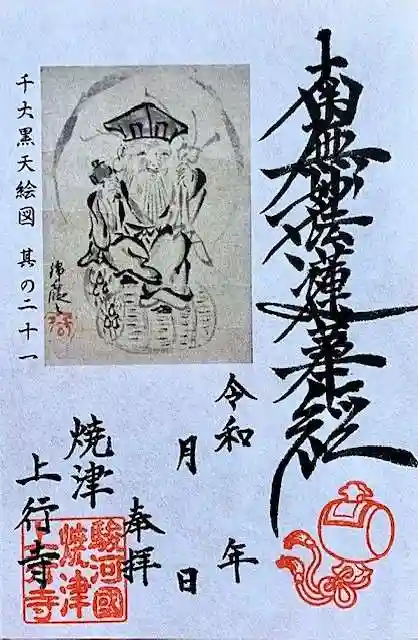 南無妙法蓮華経
令和 年
月 日
奉拝
焼津
上行寺
千大黒天絵図 其の二十一
駿河國
焼津
上行寺